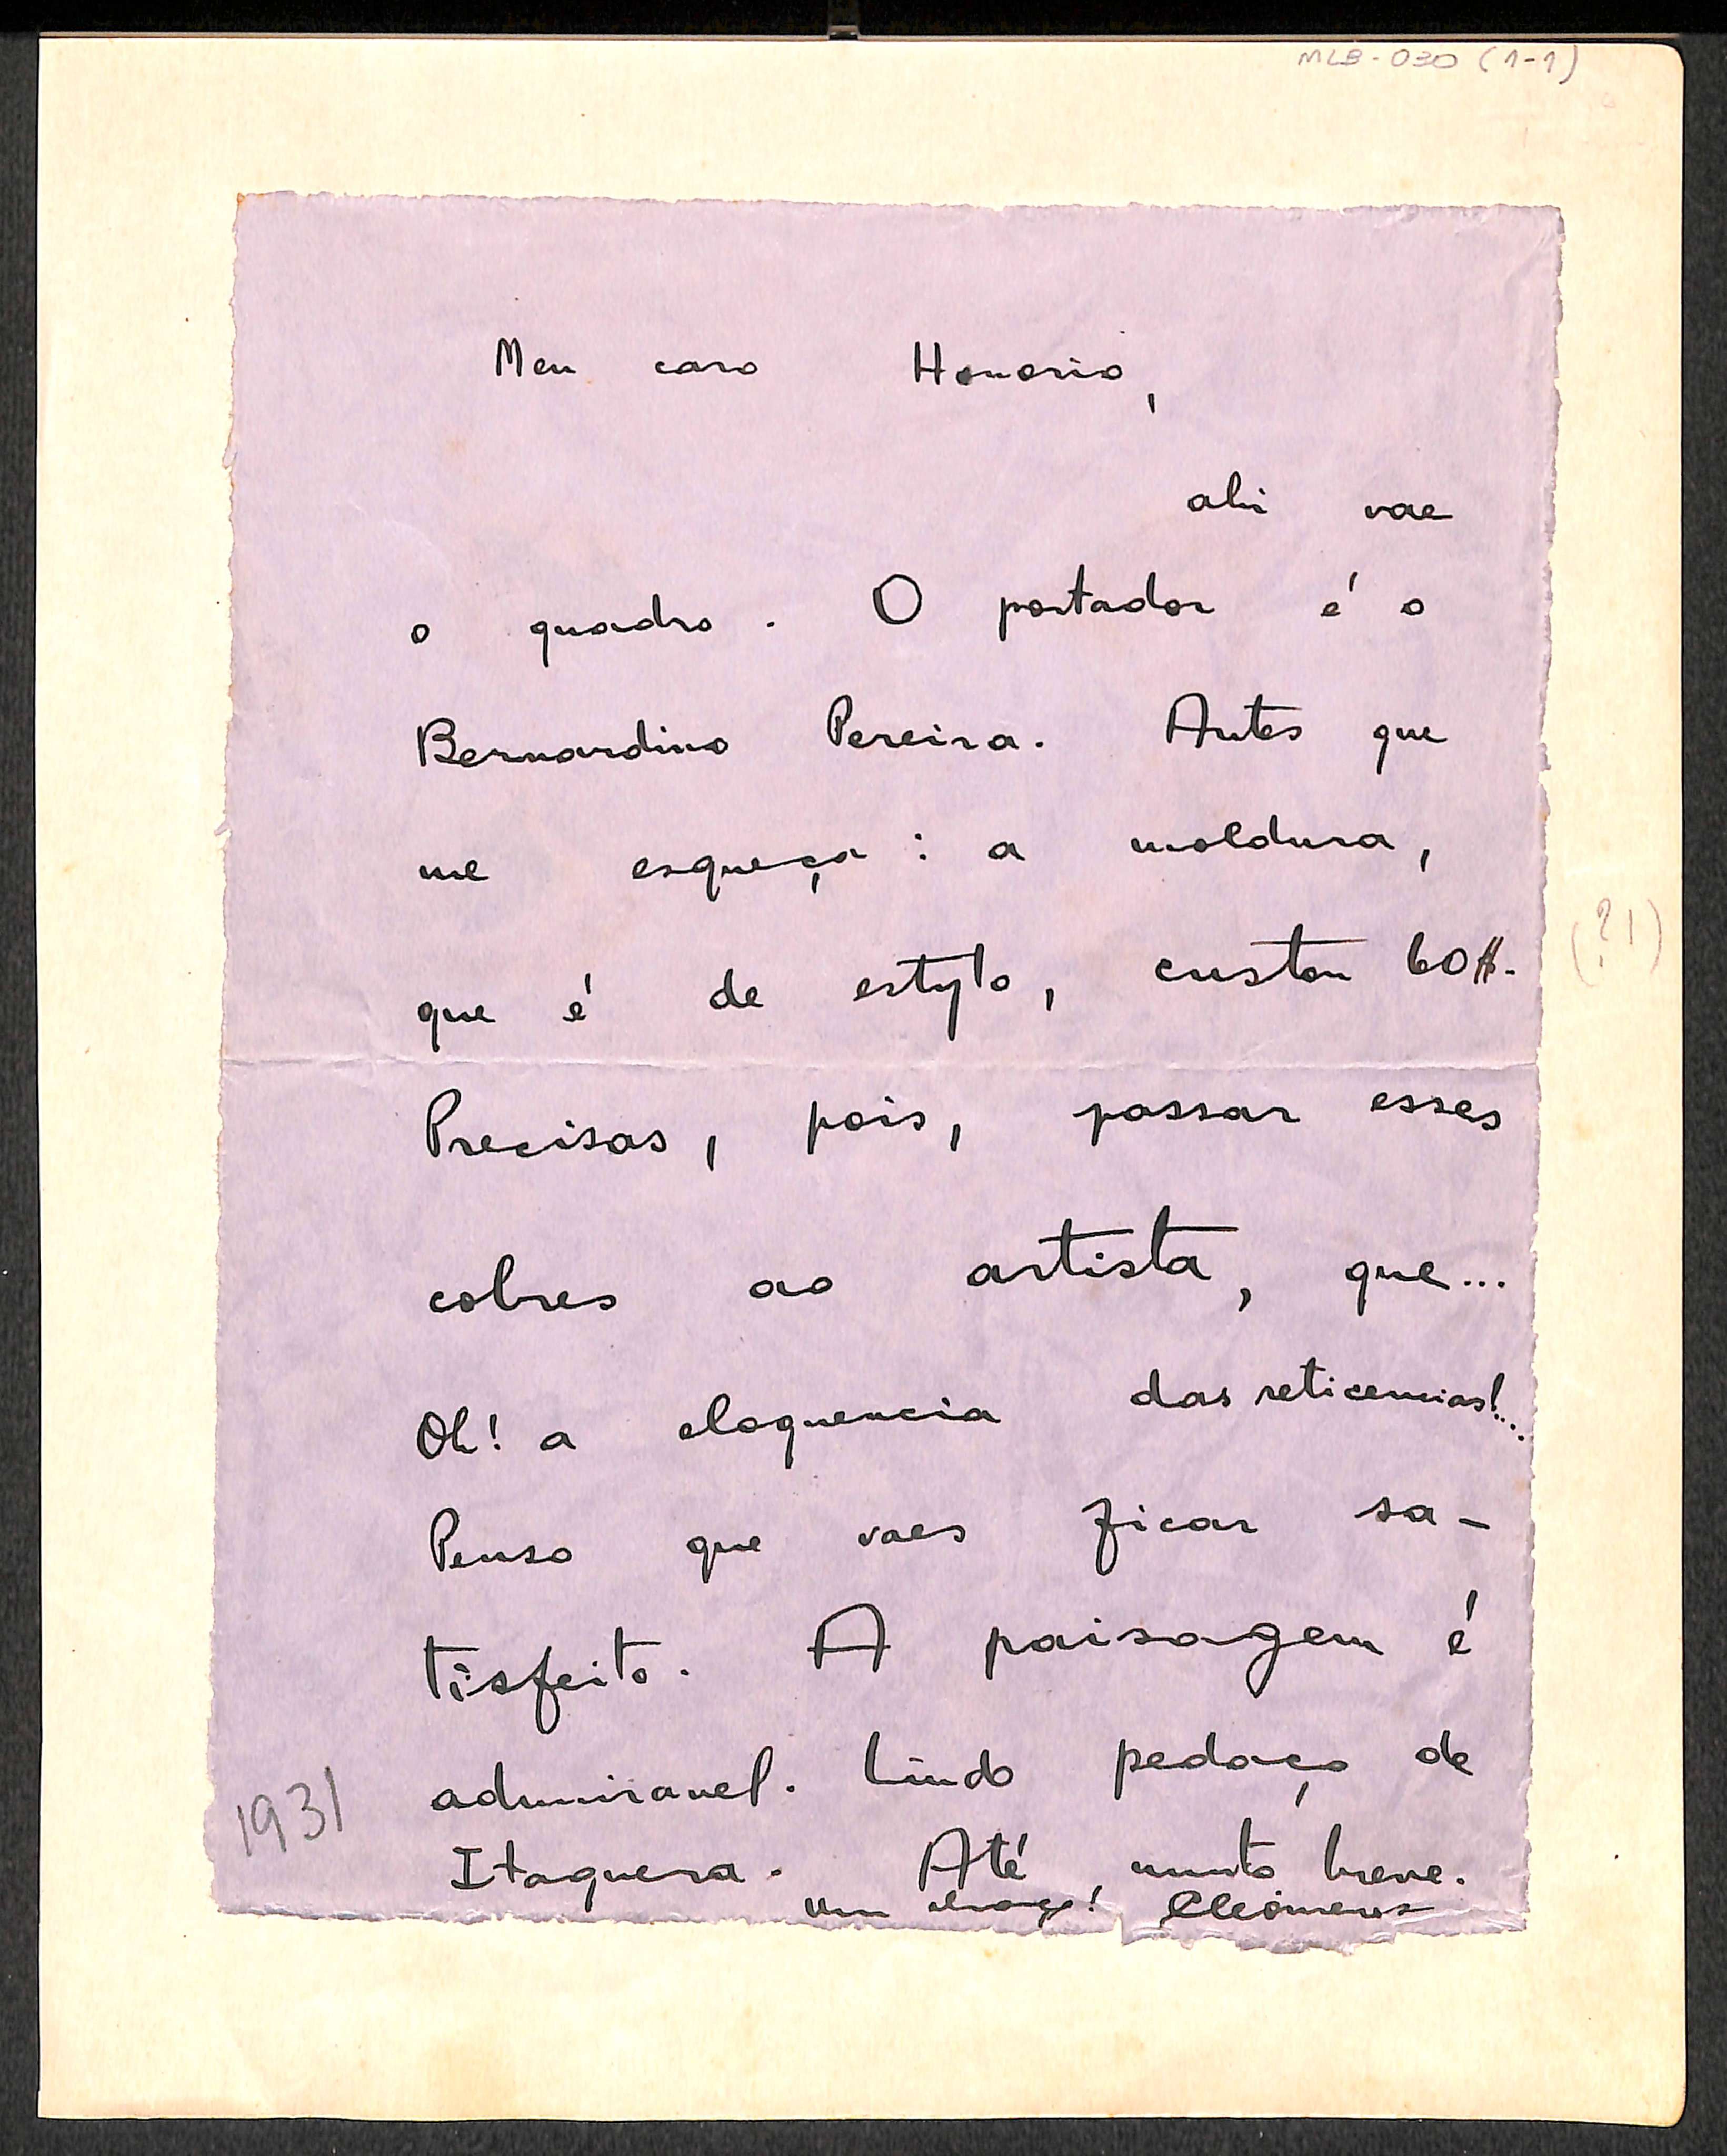 MLB-030 (1-1)
Meu caro Honorio,
ahi vae
o quadro. O portador é o
Bernardino Pereira. Antes que
me esqueça: a moldura,
que é de estylo, custou 60$.
(?!)
Precisas, pois, passar esses
cobres ao artista, que...
Oh! a eloquencia das reticencias!...
Penso que vaes ficar sa-
tisfeito. A paisagem é
admiravel. Lindo pedaço de
1931
Itaquera. Até, muito breve.
Um abraço! Cleómenes